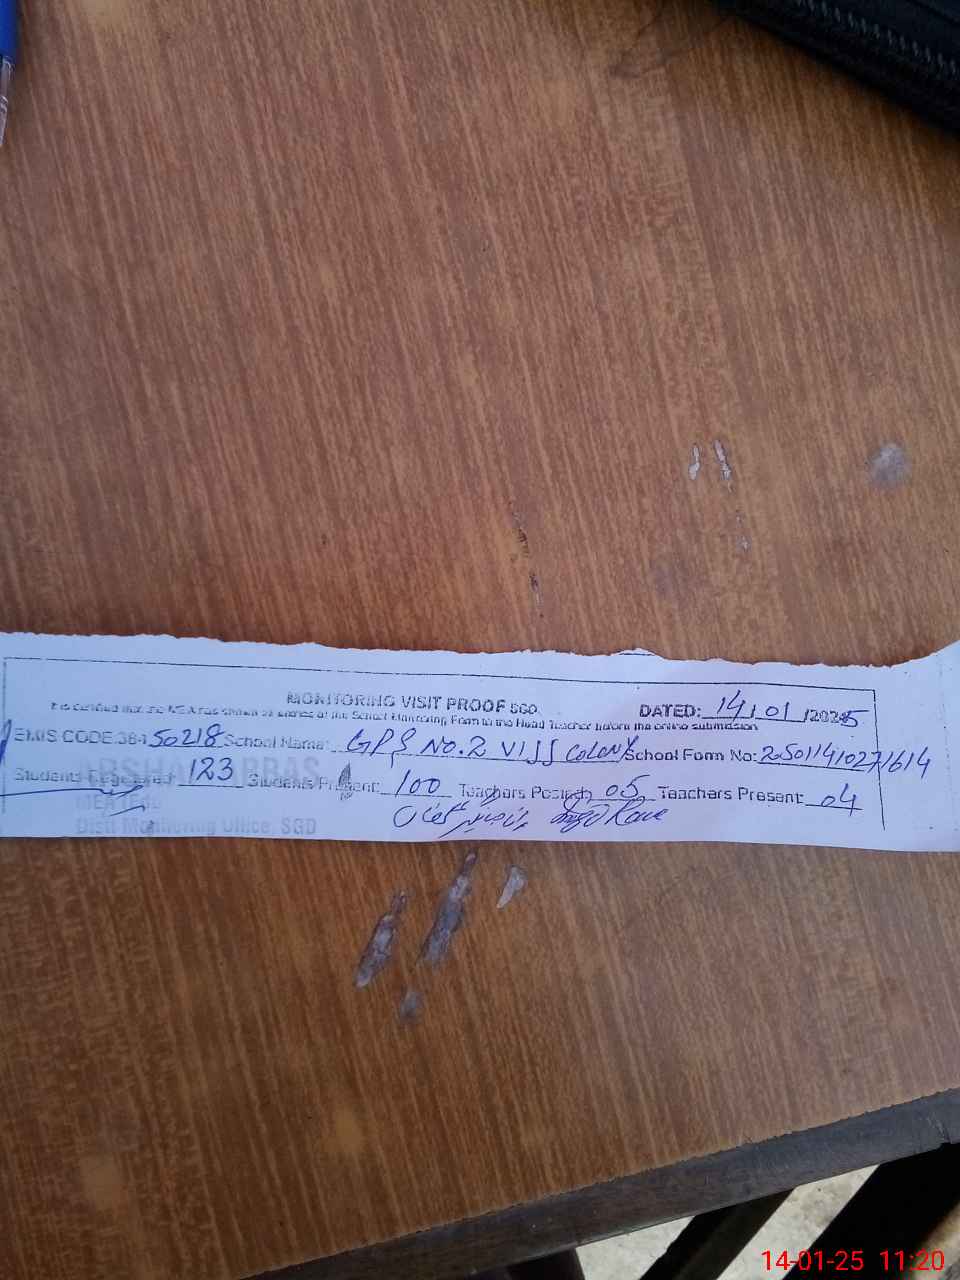 MONITORING VISIT PROOF SGD DATED: 14/01/2025
It is certified that the MEA has shown all entries of the School Monitoring Form to the Head Teacher before the online submission
EMIS CODE:384 50218 School Name: GPS NO.2 VIJJ COLONY School Form No: 25011410271614
Students Registered: 123 Students Present: 100 Teachers Posted: 05 Teachers Present: 04
ARSHAD ABBAS
MEA
Distt Monitoring Office, SGD
14-01-25 11:20